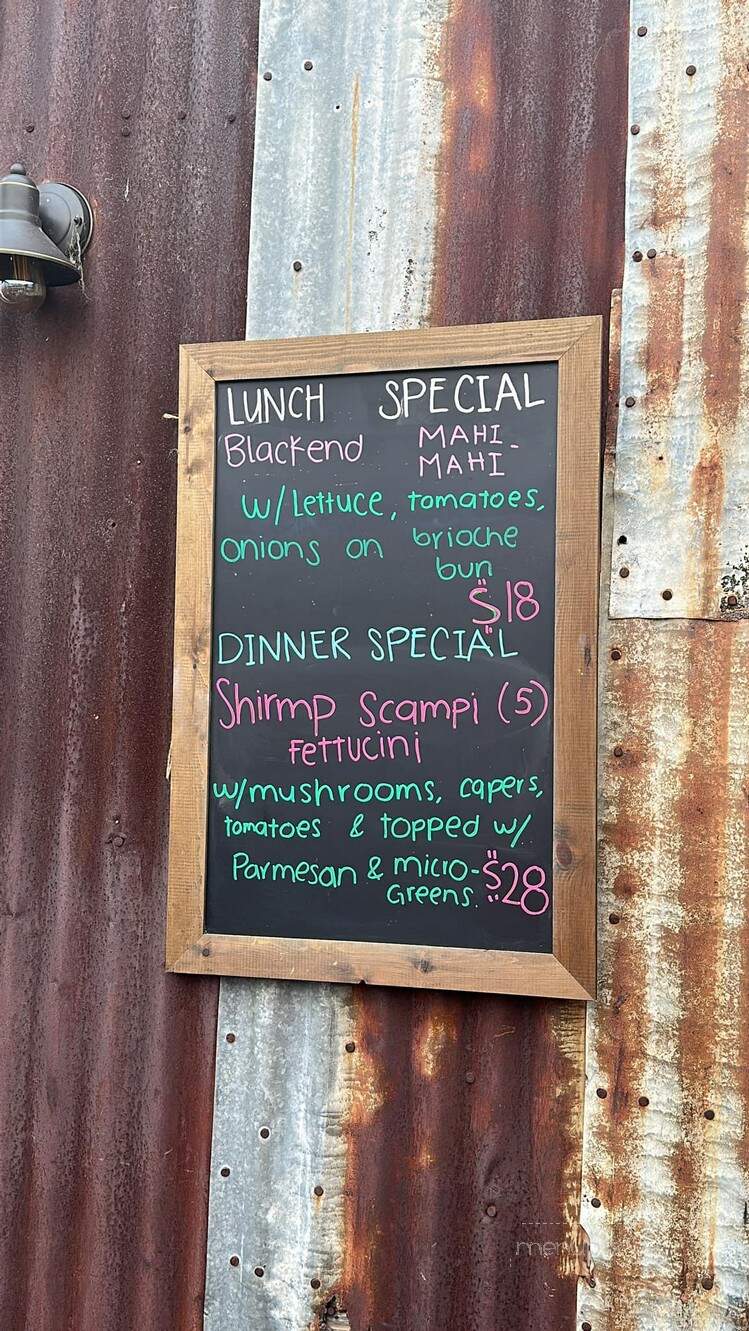 LUNCH SPECIAL
Blackend MAHI-
MAHI
w/Lettuce, tomatoes,
onions on brioche
bun
$18
DINNER SPECIAL
Shirmp Scampi (5)
Fettucini
w/mushrooms, capers,
tomatoes & topped w/
Parmesan & micro-
Greens. $28